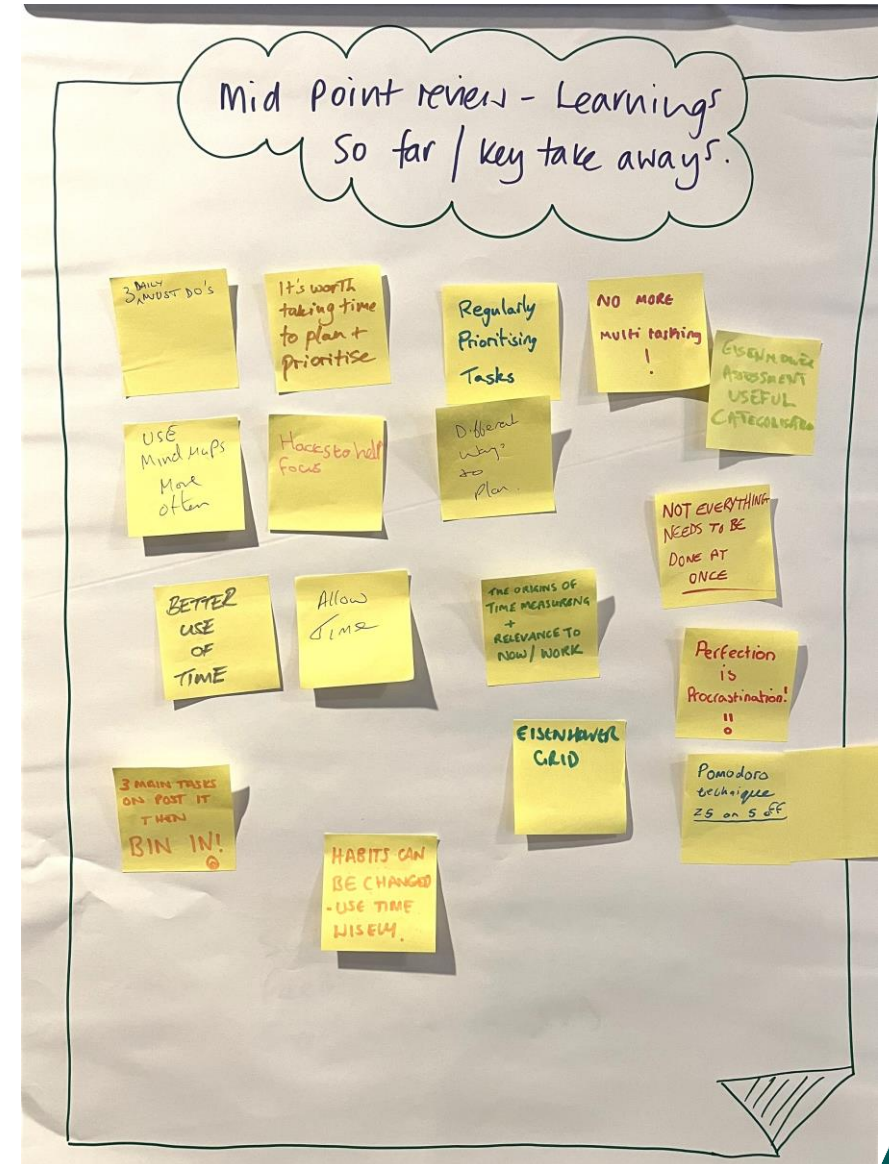 Mid Point review - Learnings
So far / key take aways.
3 DAILY MUST DO'S
It's worth
taking time
to plan +
prioritise
Regularly
Prioritising
Tasks
NO MORE
Multi tasking
!
EISENHOWER
ASSESSMENT
USEFUL
USE
Mind Maps
More
often
Hacks to help
focus
Different
ways
to
Plan.
NOT EVERYTHING
NEEDS TO BE
DONE AT
ONCE
BETTER
USE
OF
TIME
Allow
Time
THE ORIGINS OF
TIME MEASURING
+
RELEVANCE TO
NOW / WORK
Perfection
is
Procrastination!
!!
EISENHOWER
GRID
Pomodoro
technique
25 on 5 off
3 MAIN TASKS
ON POST IT
THEN
BIN IN!
HABITS CAN
BE CHANGED
- USE TIME
WISELY.